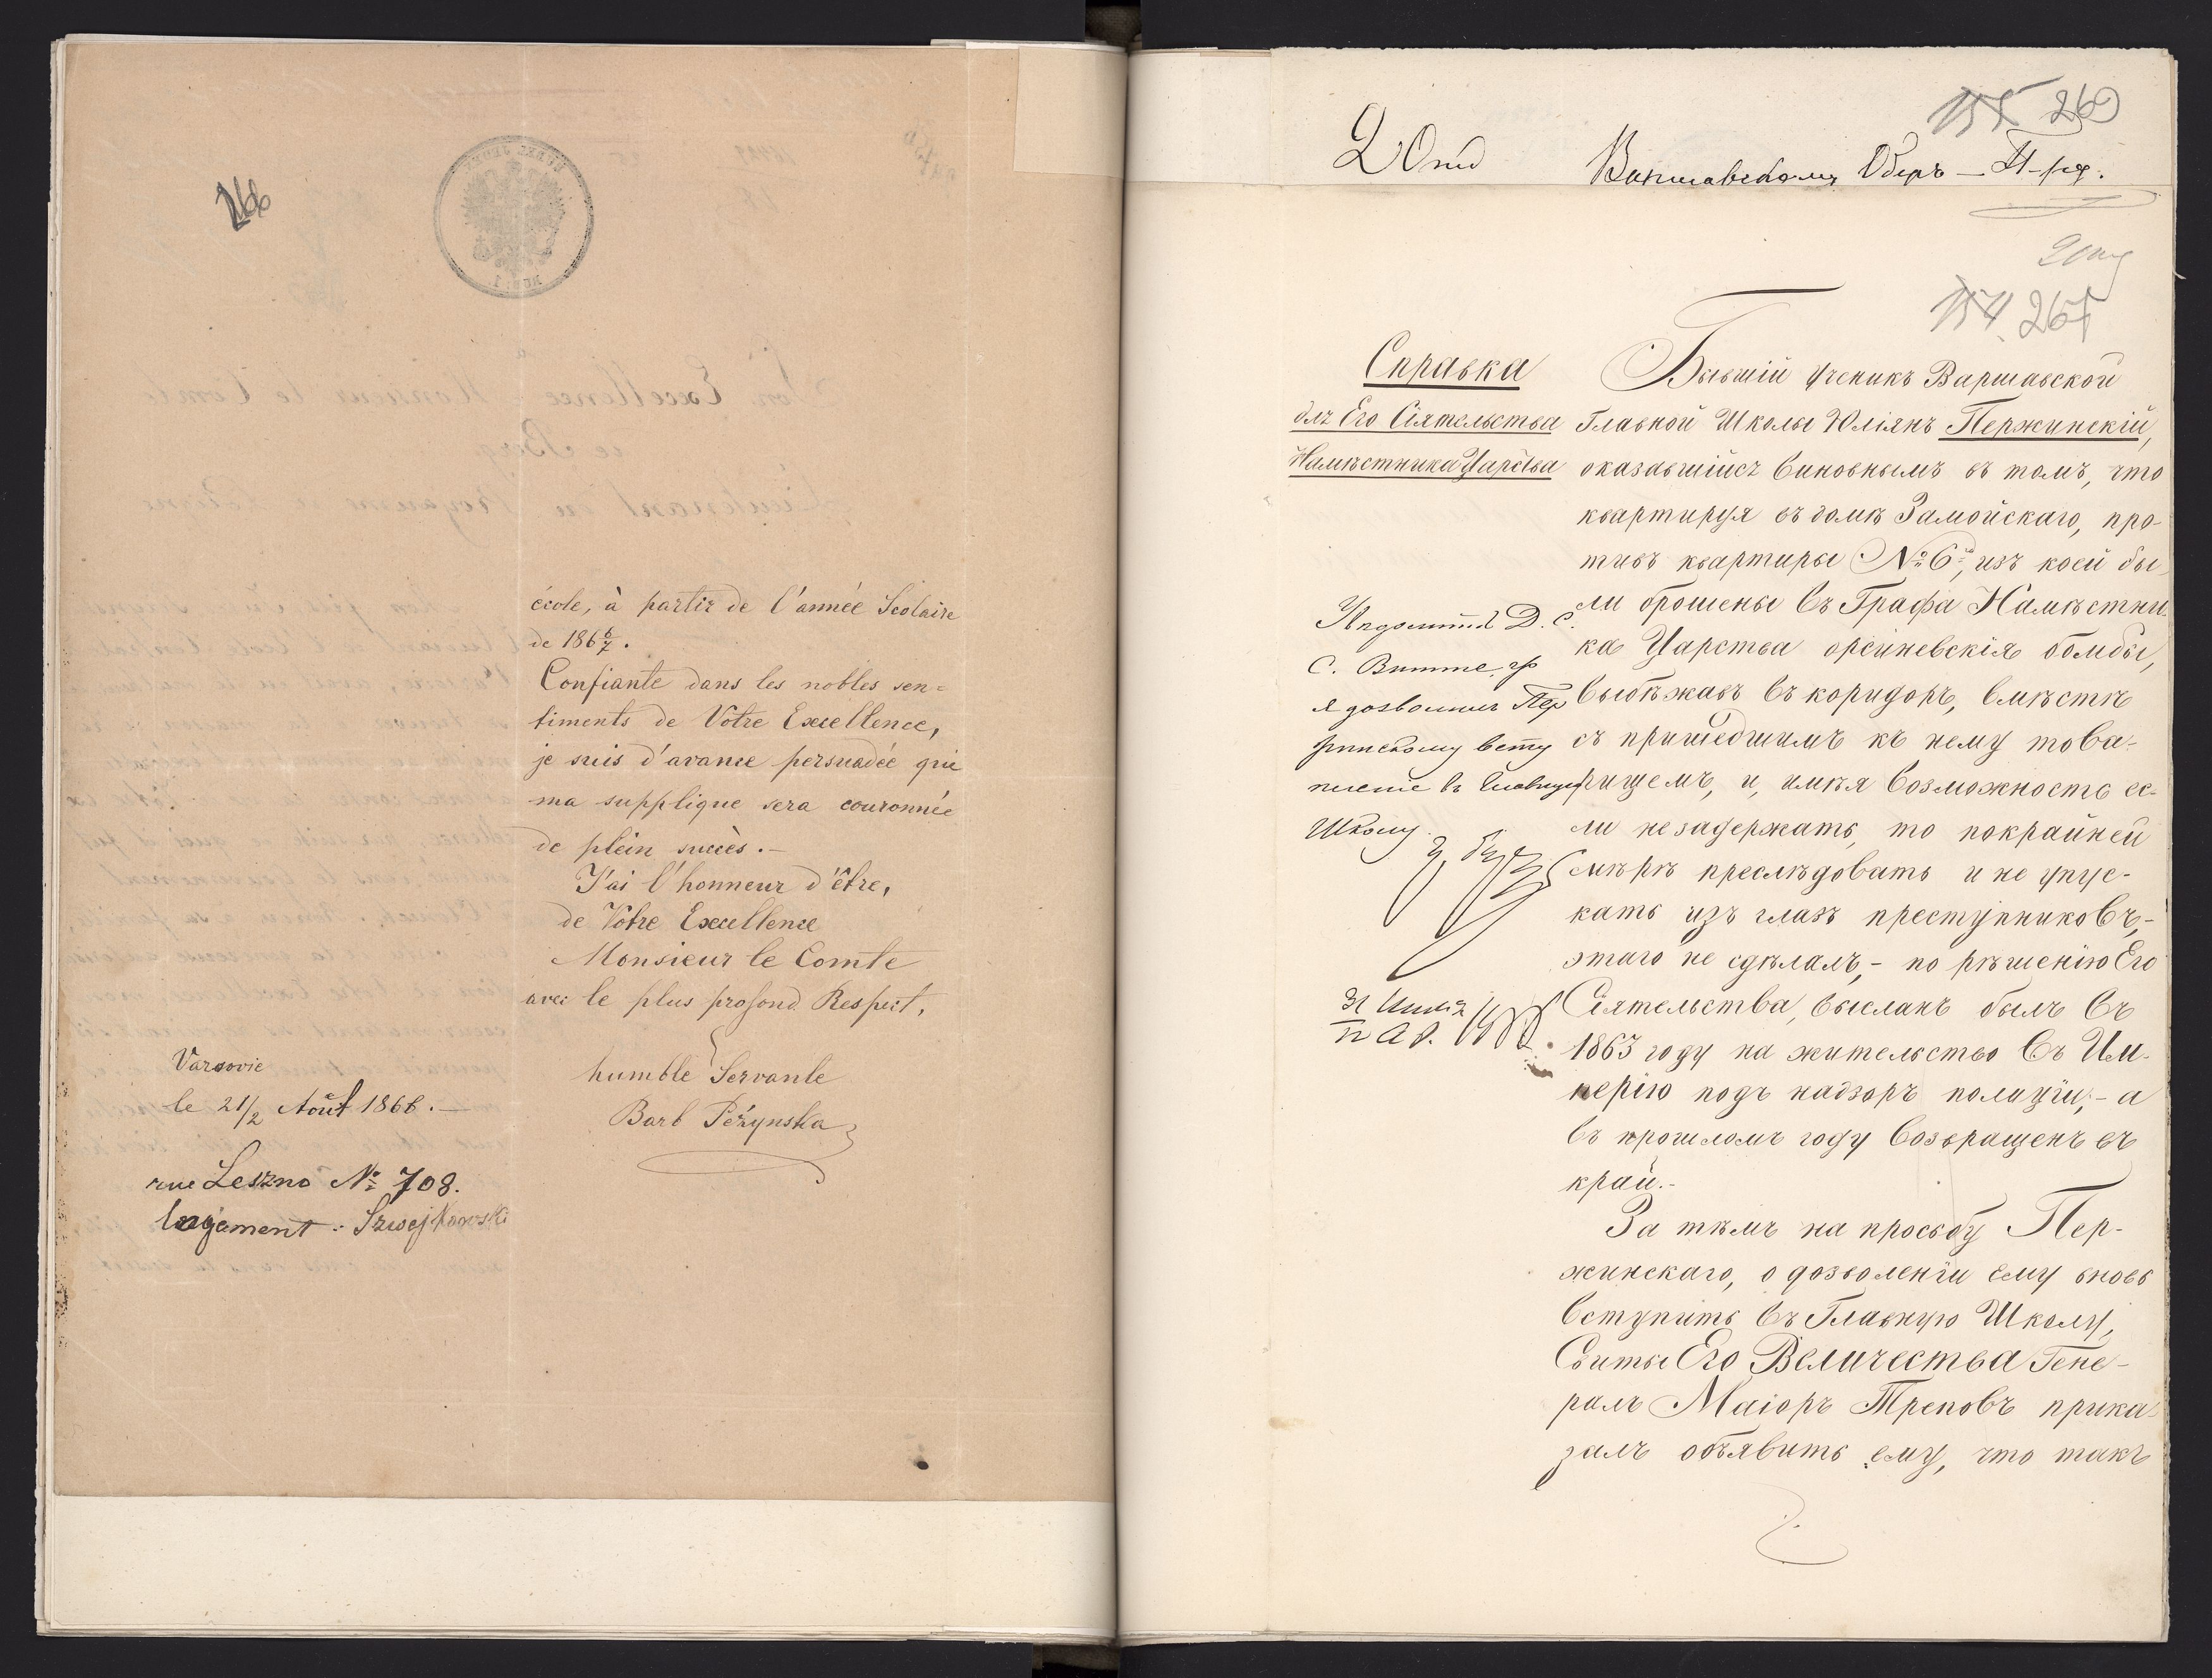 266
école, à partir de l'année Scolaire
de 186 6/7.
Confiante dans les nobles sen=
timents de Votre Excellence,
je suis d'avance persuadée que
ma supplique sera couronnée
de plein succès.—
J'ai l'honneur d'être,
de Votre Excellence
Monsieur le Comte
avec le plus profond Respect,
humble Servante
Barb Pérzynska
Varsovie
le 21/2 Août 1866.—
rue Leszno № 708.
logement: Szwejkowski
2 Отд
Варшавскому Оберъ-П-
155 269
154 267
Справка
для Его Сіятельства
Намѣстника Царства
Бывшій ученикъ Варшавской
Главной Школы Юліянъ Пержинскій,
оказавшійся виновнымъ въ томъ, что
квартируя въ домѣ Замойскаго, про-
тивъ квартиры № 6й, изъ коей бы-
ли брошены въ Графа Намѣстни-
ка Царства орсиневскія бомбы,
выбѣжавъ въ коридоръ, вмѣстѣ
съ пришедшимъ къ нему това-
рищемъ, и, имѣя возможность ес-
ли незадержать, то покрайней
мѣрѣ преслѣдовать и не упус-
кать изъ глазъ преступниковъ,-
этаго не сдѣлалъ,- по рѣшенію Его
Сіятельства, высланъ былъ въ
1863 году на жительство въ Им-
перію подъ надзоръ полиціи,- а
въ прошломъ году возвращенъ въ
край.-
За тѣмъ на просьбу Пер-
жинскаго, о дозволеніи ему вновь
вступить въ Главную Школу,
Свиты Его Величества Гене-
ралъ Маіоръ Треповъ прика-
залъ объявить ему, что такъ
Д. С.
С. Витте, что
я дозволилъ Пер
жинскому всту
пленіе въ Главную
Школу.
31 Іюля
12 Ав.